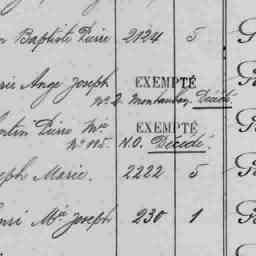 n Baptiste Pierre 2124 5 G
rie Ange Joseph EXEMPTÉ
No 2. Montauban, Décédé.
entin Pierre Mie EXEMPTÉ
No 115. N.O. Décédé.
seph Marie. 2222 5
enri Mie Joseph 230 1